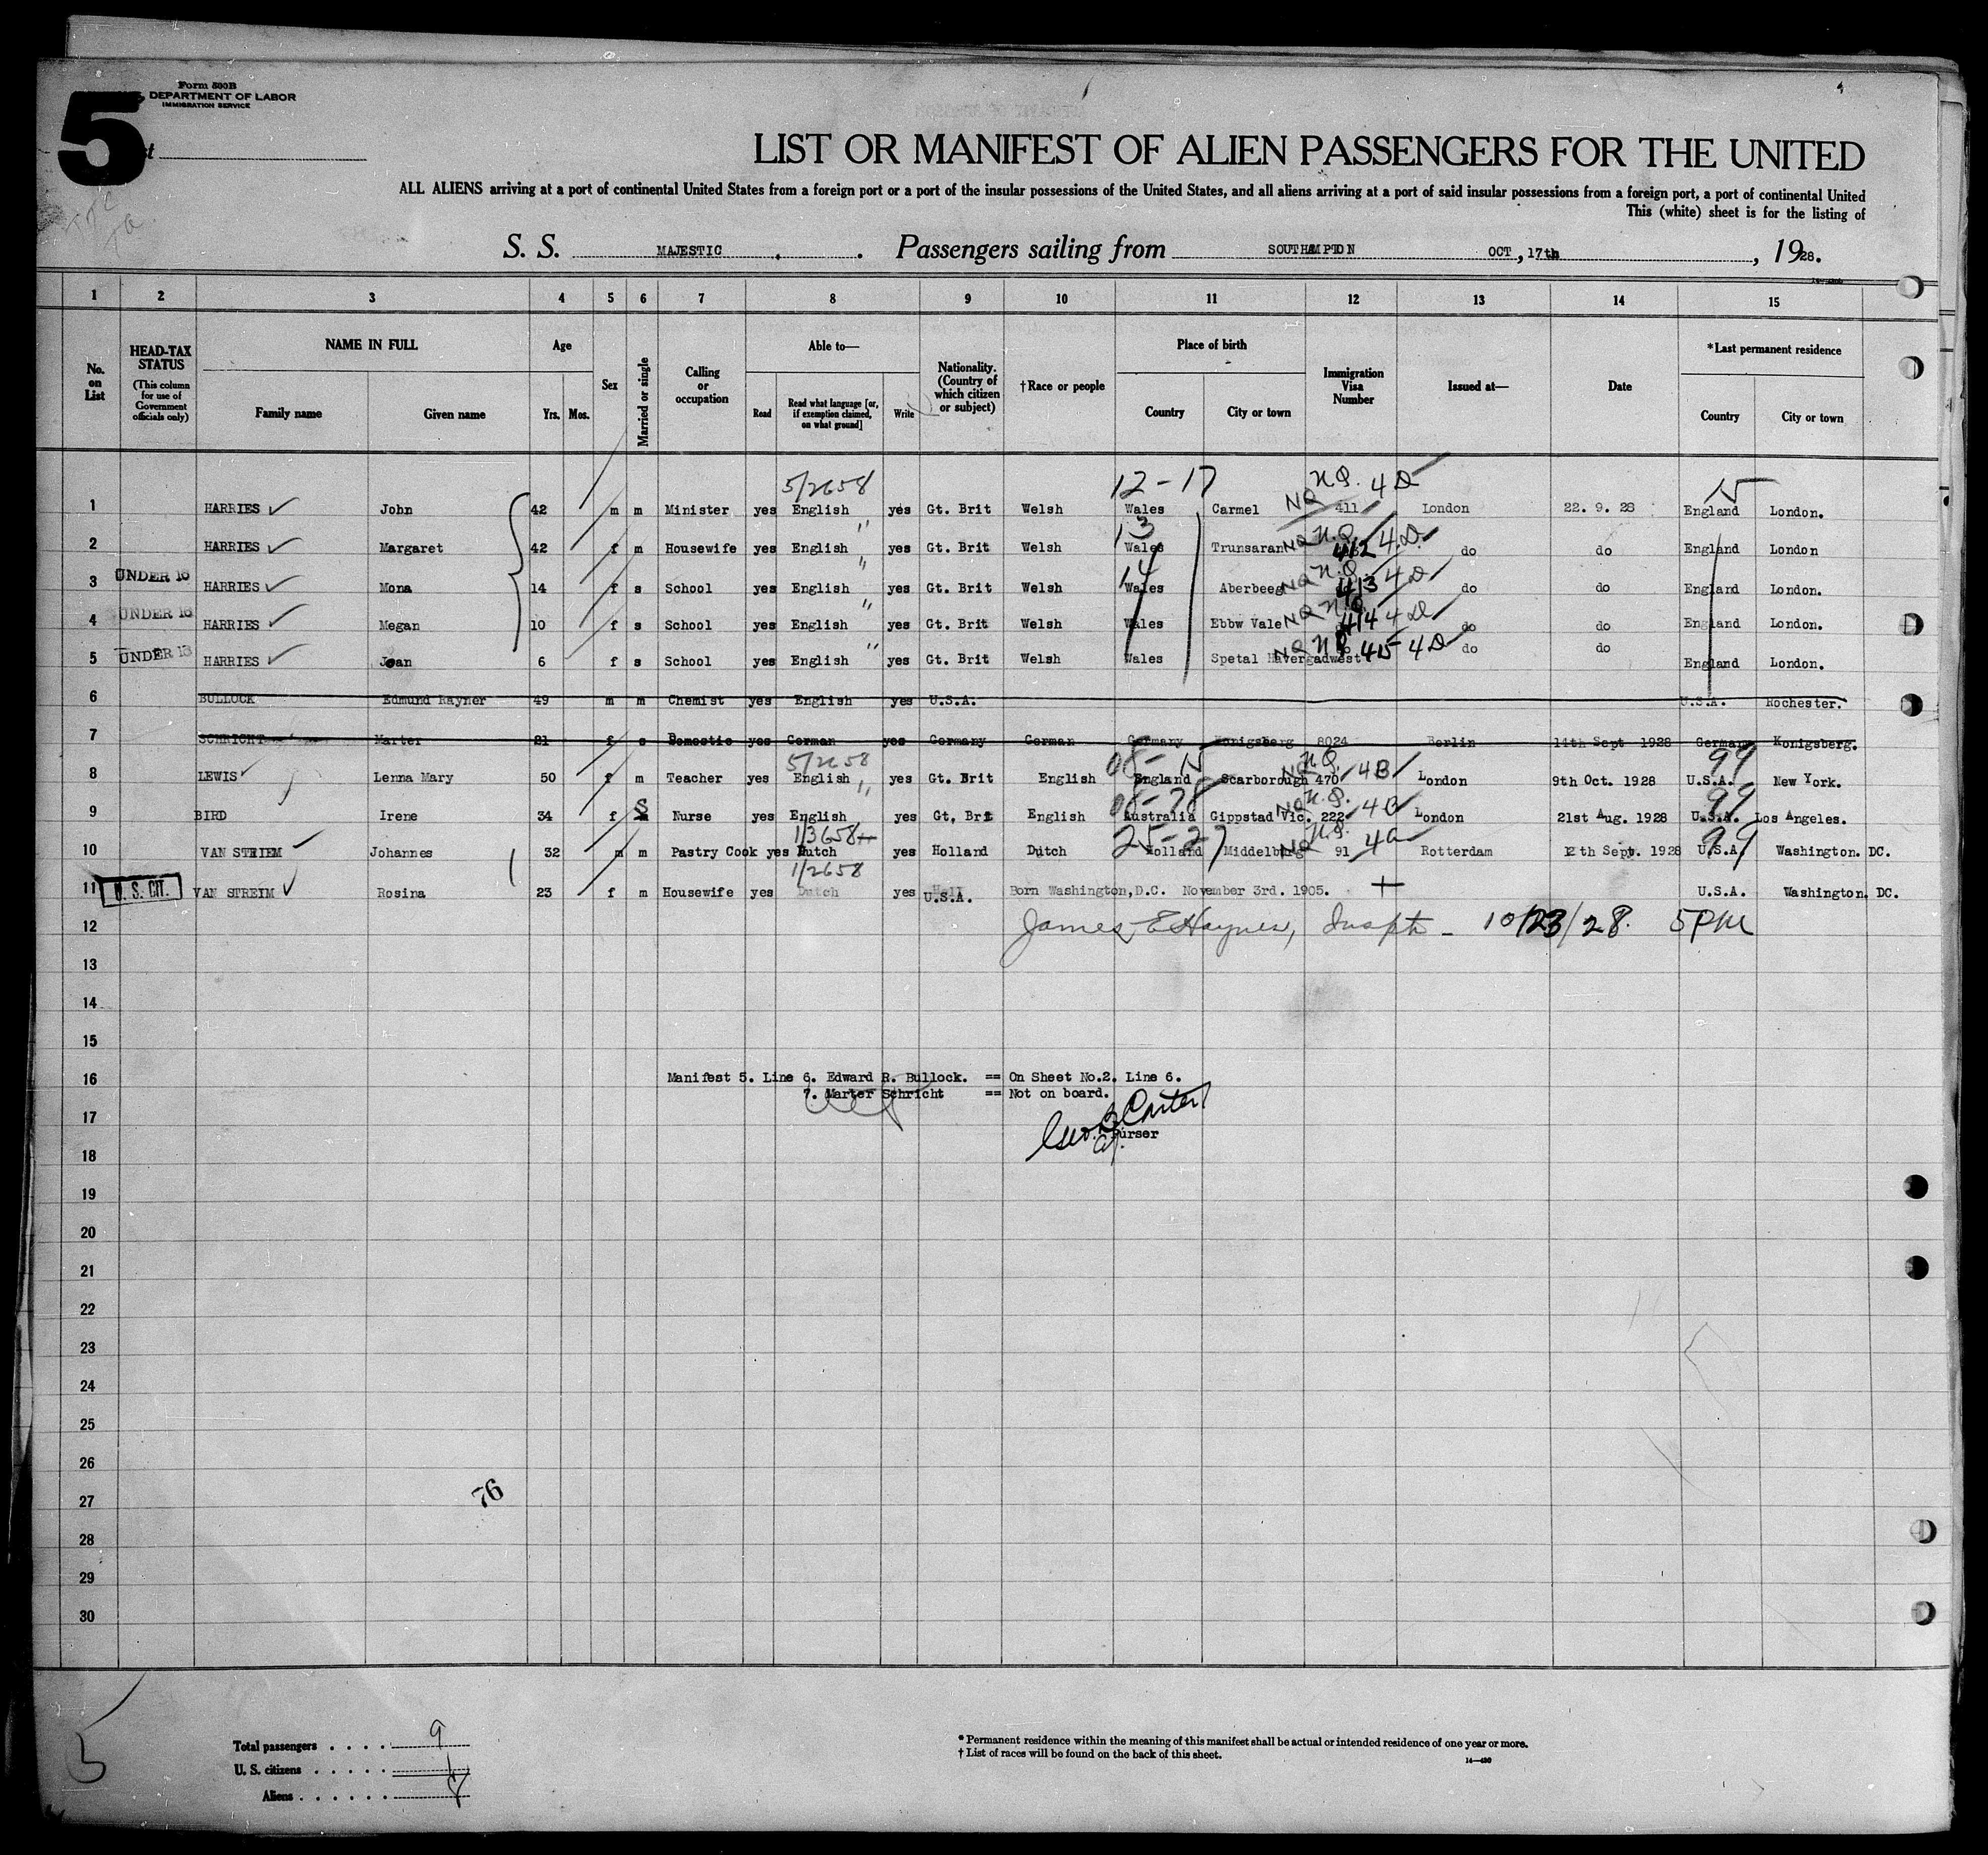 Form 500B
DEPARTMENT OF LABOR
IMMIGRATION SERVICE
5
LIST OR MANIFEST OF ALIEN PASSENGERS FOR THE UNITED
ALL ALIENS arriving at a port of continental United States from a foreign port or a port of the insular possessions of the United States, and all aliens arriving at a port of said insular possessions from a foreign port, a port of continental United
This (white) sheet is for the listing of
S. S. MAJESTIC. Passengers sailing from SOUTHAMPTON OCT, 17th, 1928.
1 2 3 4 5 6 7 8 9 10 11 12 13 14 15
No. on List
HEAD-TAX STATUS (This column for use of Government officials only)
NAME IN FULL
Family name Given name
Age
Yrs. Mos.
Sex
Married or single
Calling or occupation
Able to—
Read Read what language [or, if exemption claimed, on what ground] Write
Nationality. (Country of which citizen or subject)
†Race or people
Place of birth
Country City or town
Immigration Visa Number
Issued at—
Date
*Last permanent residence
Country City or town
5/2658 12-17 N.Q. 4D 15
1 HARRIES John 42 m m Minister yes English yes Gt. Brit Welsh Wales Carmel NQ 411 London 22. 9. 28 England London.
2 HARRIES Margaret 42 f m Housewife yes English " yes Gt. Brit Welsh 13 Wales Trunsaran NQ 412 4D do do England London
3 UNDER 16 HARRIES Mona 14 f s School yes English " yes Gt. Brit Welsh 14 Wales Aberbeeg NQ 413 4D do do England London.
4 UNDER 16 HARRIES Megan 10 f s School yes English " yes Gt. Brit Welsh Wales Ebbw Vale NQ 414 4D do do England London.
5 UNDER 13 HARRIES Joan 6 f s School yes English " yes Gt. Brit Welsh Wales Spetal Havergadwest NQ 415 4D do do England London.
6 BULLOCK Edmund Rayner 49 m m Chemist yes English yes U.S.A. U.S.A. Rochester.
7 SCHRICHT Marter 21 f s Domestic yes German yes Germany German Germany Konigsberg 8024 Berlin 14th Sept 1928 Germany Konigsberg.
5/2658 08-15 N.Q. 99
8 LEWIS Lenna Mary 50 f m Teacher yes English yes Gt. Brit English England Scarborough 470 4B London 9th Oct. 1928 U.S.A. New York.
" 08-78 NQ N.Q. 99
9 BIRD Irene 34 f s Nurse yes English yes Gt, Brit English Australia Gippstad Vic. 222 4B London 21st Aug. 1928 U.S.A. Los Angeles.
1/3658+ 25-27 N.Q. 99
10 VAN STRIEM Johannes 32 m m Pastry Cook yes Dutch yes Holland Dutch Holland Middelburg NQ 91 4a Rotterdam 12th Sept. 1928 U.S.A. Washington. DC.
1/2658
11 U. S. CIT. VAN STREIM Rosina 23 f m Housewife yes Dutch yes U.S.A. Born Washington,D.C. November 3rd. 1905. + U.S.A. Washington. DC.
12 James E Haynes, Insptr - 10/23/28. 5PM
13
14
15
16 Manifest 5. Line 6. Edward R. Bullock. == On Sheet No.2. Line 6.
7. Marter Schricht == Not on board.
17 Geo B Carter
Purser
18
19
20
21
22
23
24
25
26
27 76
28
29
30
5
Total passengers . . . . 9
U. S. citizens . . . . . 1
Aliens . . . . . . 8
* Permanent residence within the meaning of this manifest shall be actual or intended residence of one year or more.
† List of races will be found on the back of this sheet.
14—430